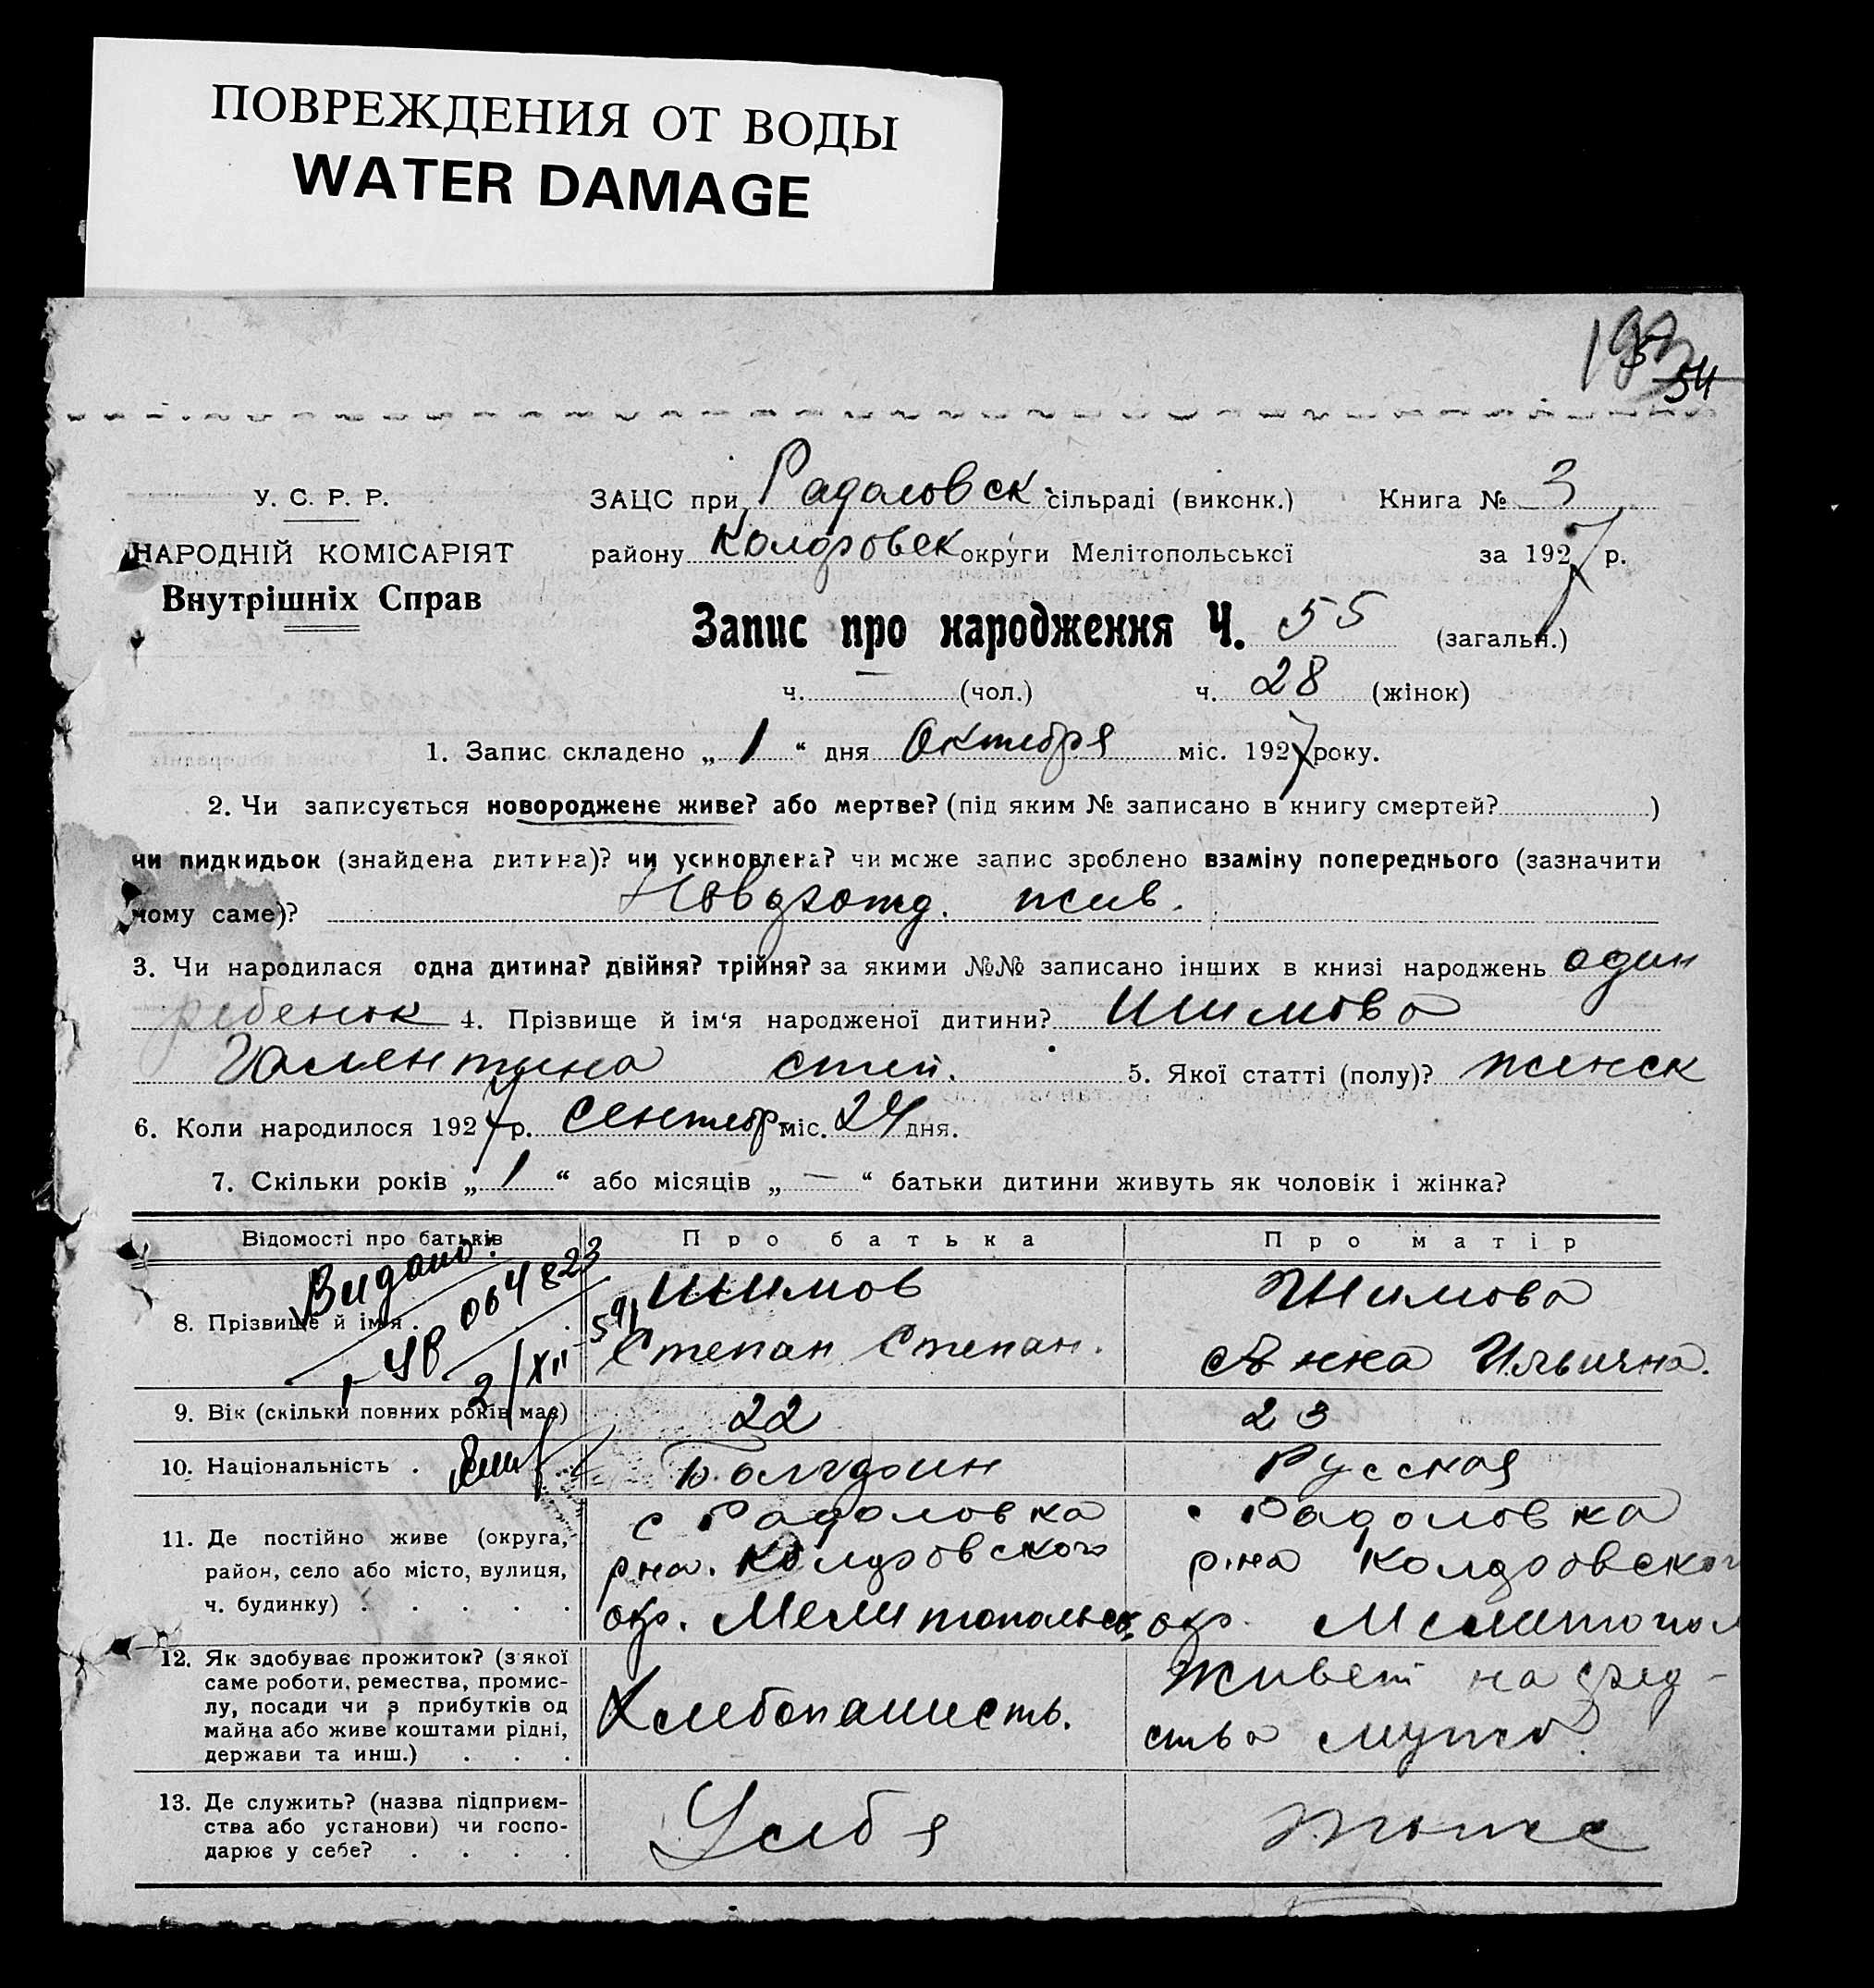 ПОВРЕЖДЕНИЯ ОТ ВОДЫ
WATER DAMAGE
54
У. С. Р. Р.
ЗАЦС при Радоловск. сільраді (виконк.) Книга № 3
НАРОДНІЙ КОМІСАРІЯТ
району Колоровск округи Мелітопольської за 1927 р.
Внутрішніх Справ
Запис про народження Ч. 55 (загальн.)
ч. — (чол.) ч. 28 (жінок)
1. Запис складено „ 1 “ дня Октября міс. 1927 року.
2. Чи записується новороджене живе? або мертве? (під яким № записано в книгу смертей? )
чи пидкидьок (знайдена дитина)? чи усиновлена? чи може запис зроблено взаміну попереднього (зазначити
чому саме)? Новорожд. жив.
3. Чи народилася одна дитина? двійня? трійня? за якими №№ записано інших в книзі народжень один
ребенок 4. Прізвище й ім‘я народженої дитини? Шимова
Валентина Степ. 5. Якої статті (полу)? женск
6. Коли народилося 1927 р. Сентябр міс. 24 дня.
7. Скільки років „ 1 “ або місяців „ — “ батьки дитини живуть як чоловік і жінка?
Відомості про батьків
Про батька
Про матір
Видано:
ЧВ 064823
2/XII
8. Прізвище й ім‘я .
Шимов
Степан Степан.
Шимова
Анна Ильична.
9. Вік (скільки повних років має)
22
23
10. Національність .
Болгарин
Русская
11. Де постійно живе (округа,
район, село або місто, вулиця,
ч. будинку) . . . . .
с Радоловка
р-на. Колоровского
окр. Мелитопольск.
с Радоловка
р-на Колоровског
окр. Мелитопол
12. Як здобуває прожиток? (з якої
саме роботи, ремества, промис-
лу, посади чи з прибутків од
майна або живе коштами рідні,
держави та инш.) . . .
Хлебопашесть.
Живет на сред-
ства мужа.
13. Де служить? (назва підприєм-
ства або установи) чи госпо-
дарює у себе? . . . .
У себя
тоже